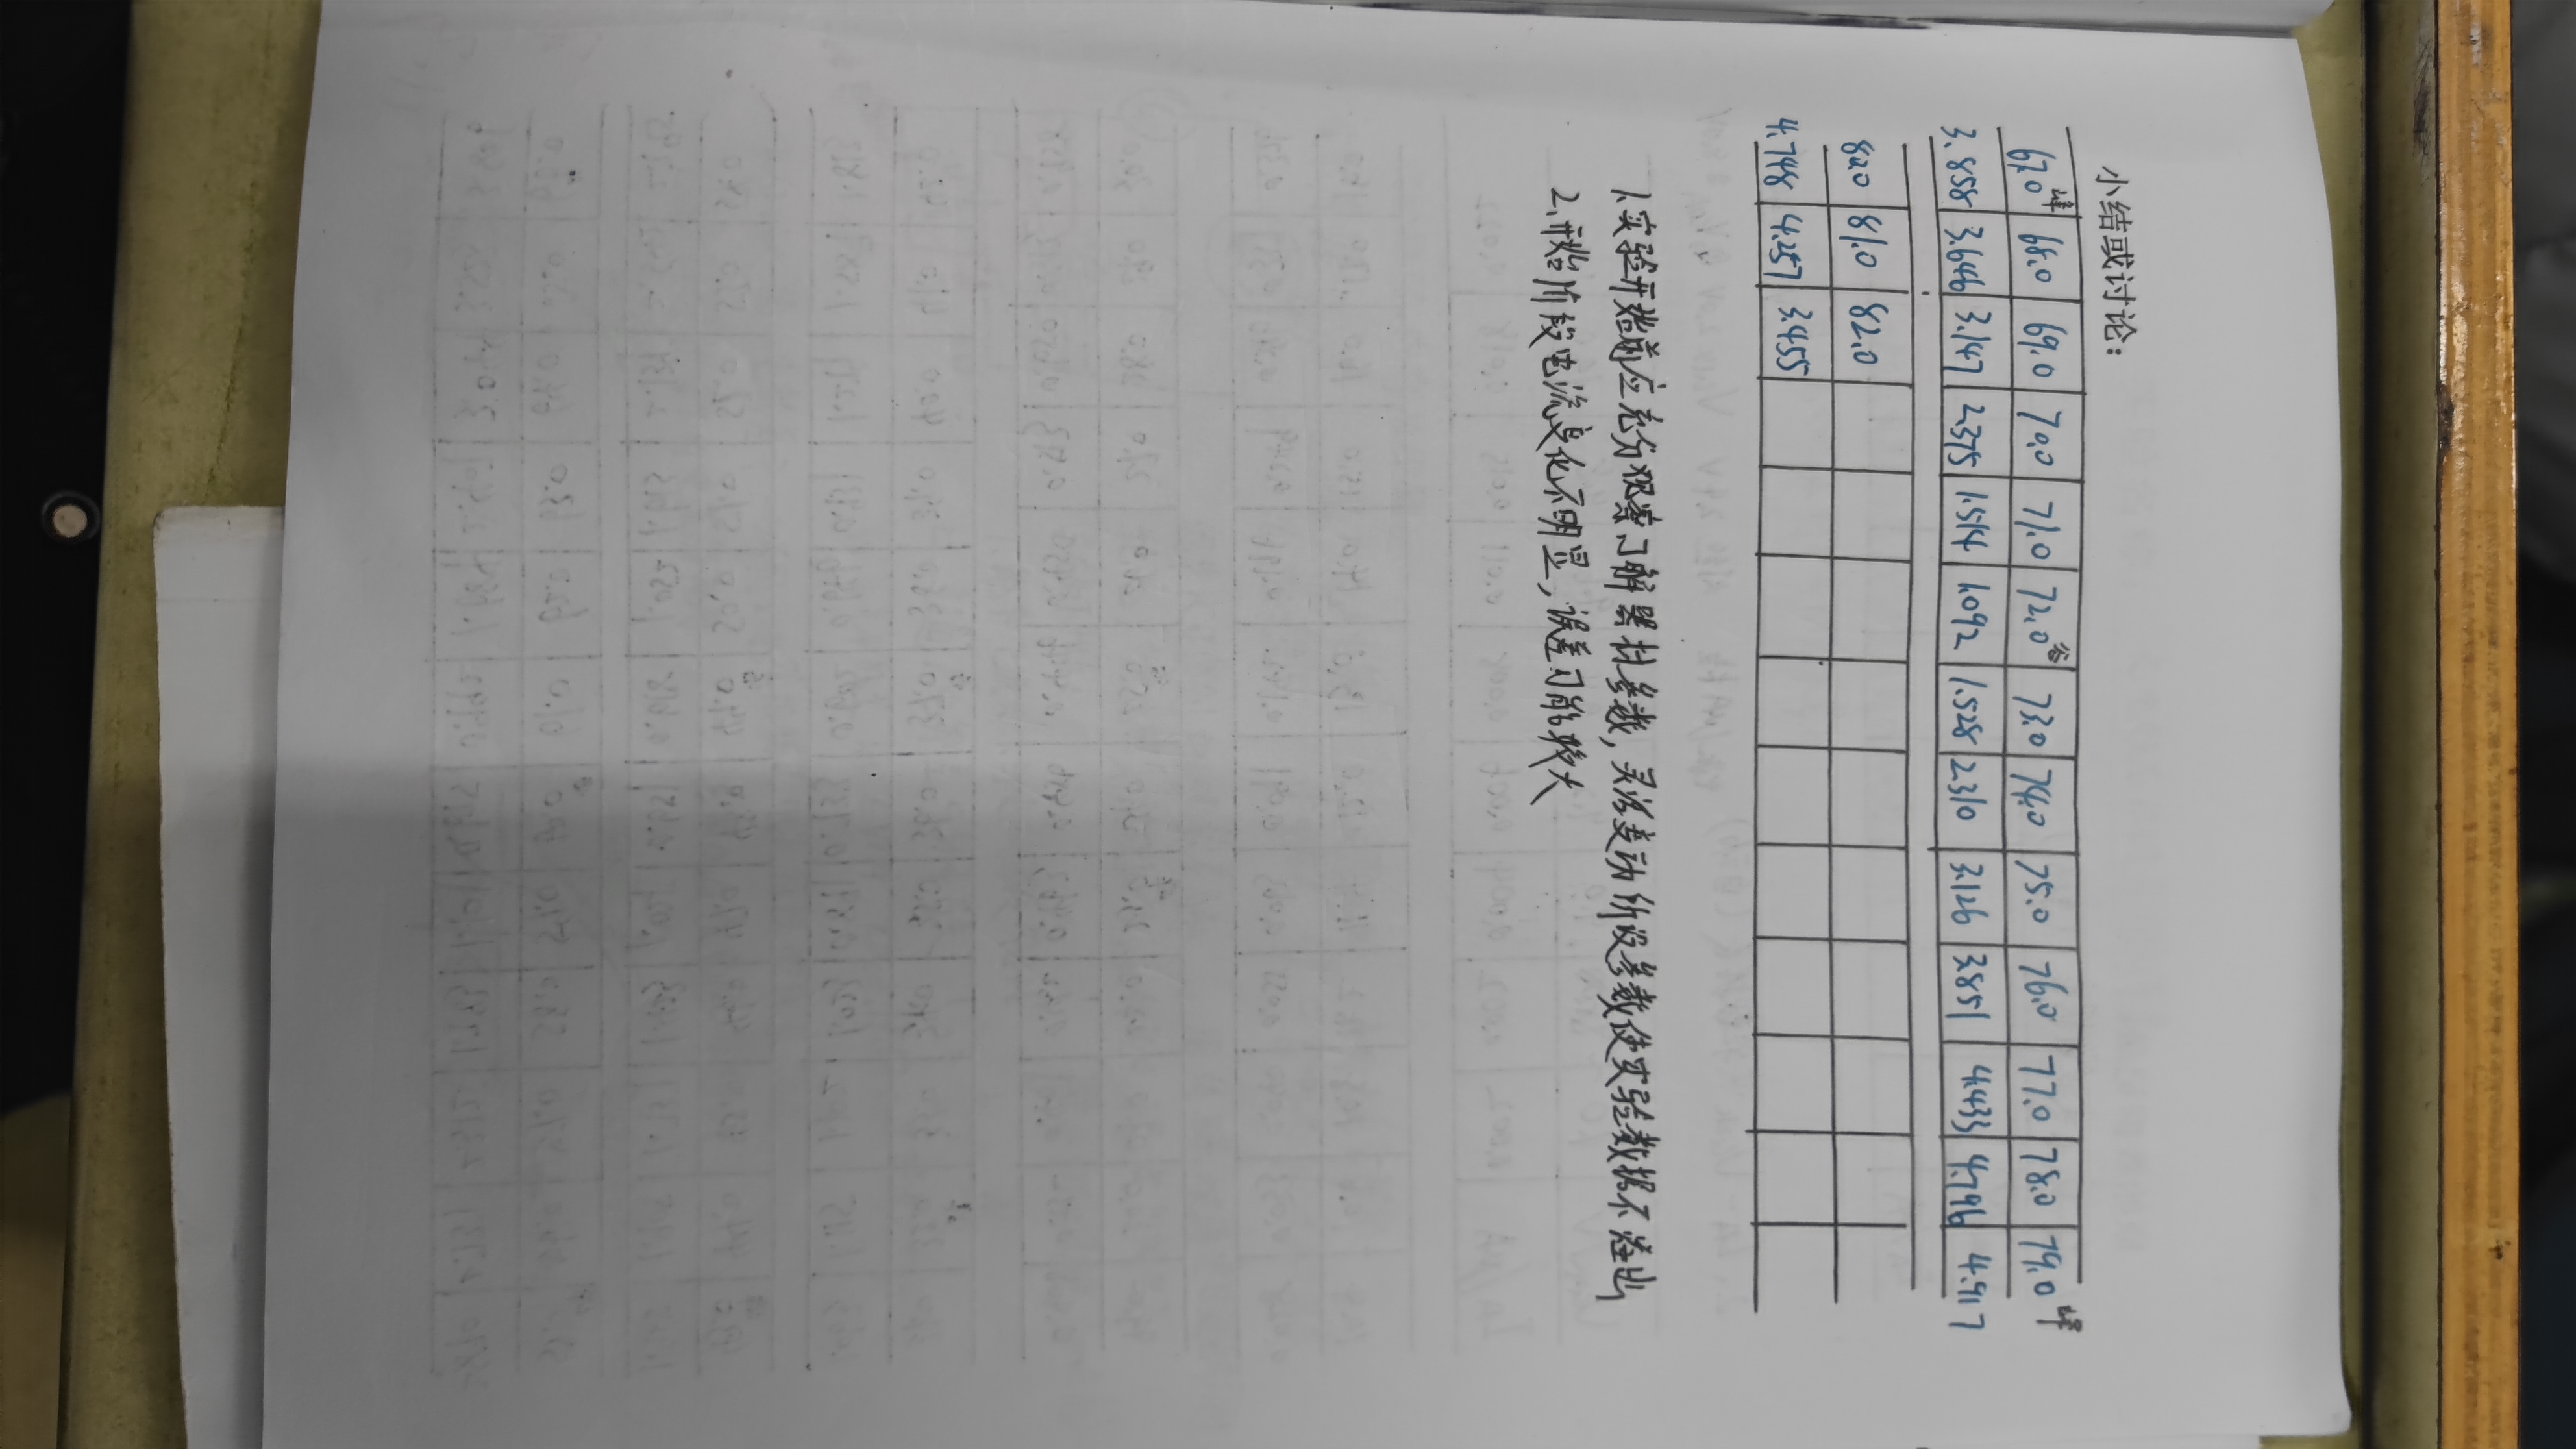 小结或讨论：
67.0峰 68.0 69.0 70.0 71.0 72.0谷 73.0 74.0 75.0 76.0 77.0 78.0 79.0峰
3.858 3.646 3.147 2.375 1.514 1.092 1.528 2.310 3.126 3.851 4.433 4.796 4.917
80.0 81.0 82.0
4.748 4.257 3.455
1.实验开始前应充分观察了解器材参数,灵活变动所设参数使实验数据不溢出
2.开始阶段电流变化不明显,误差可能较大